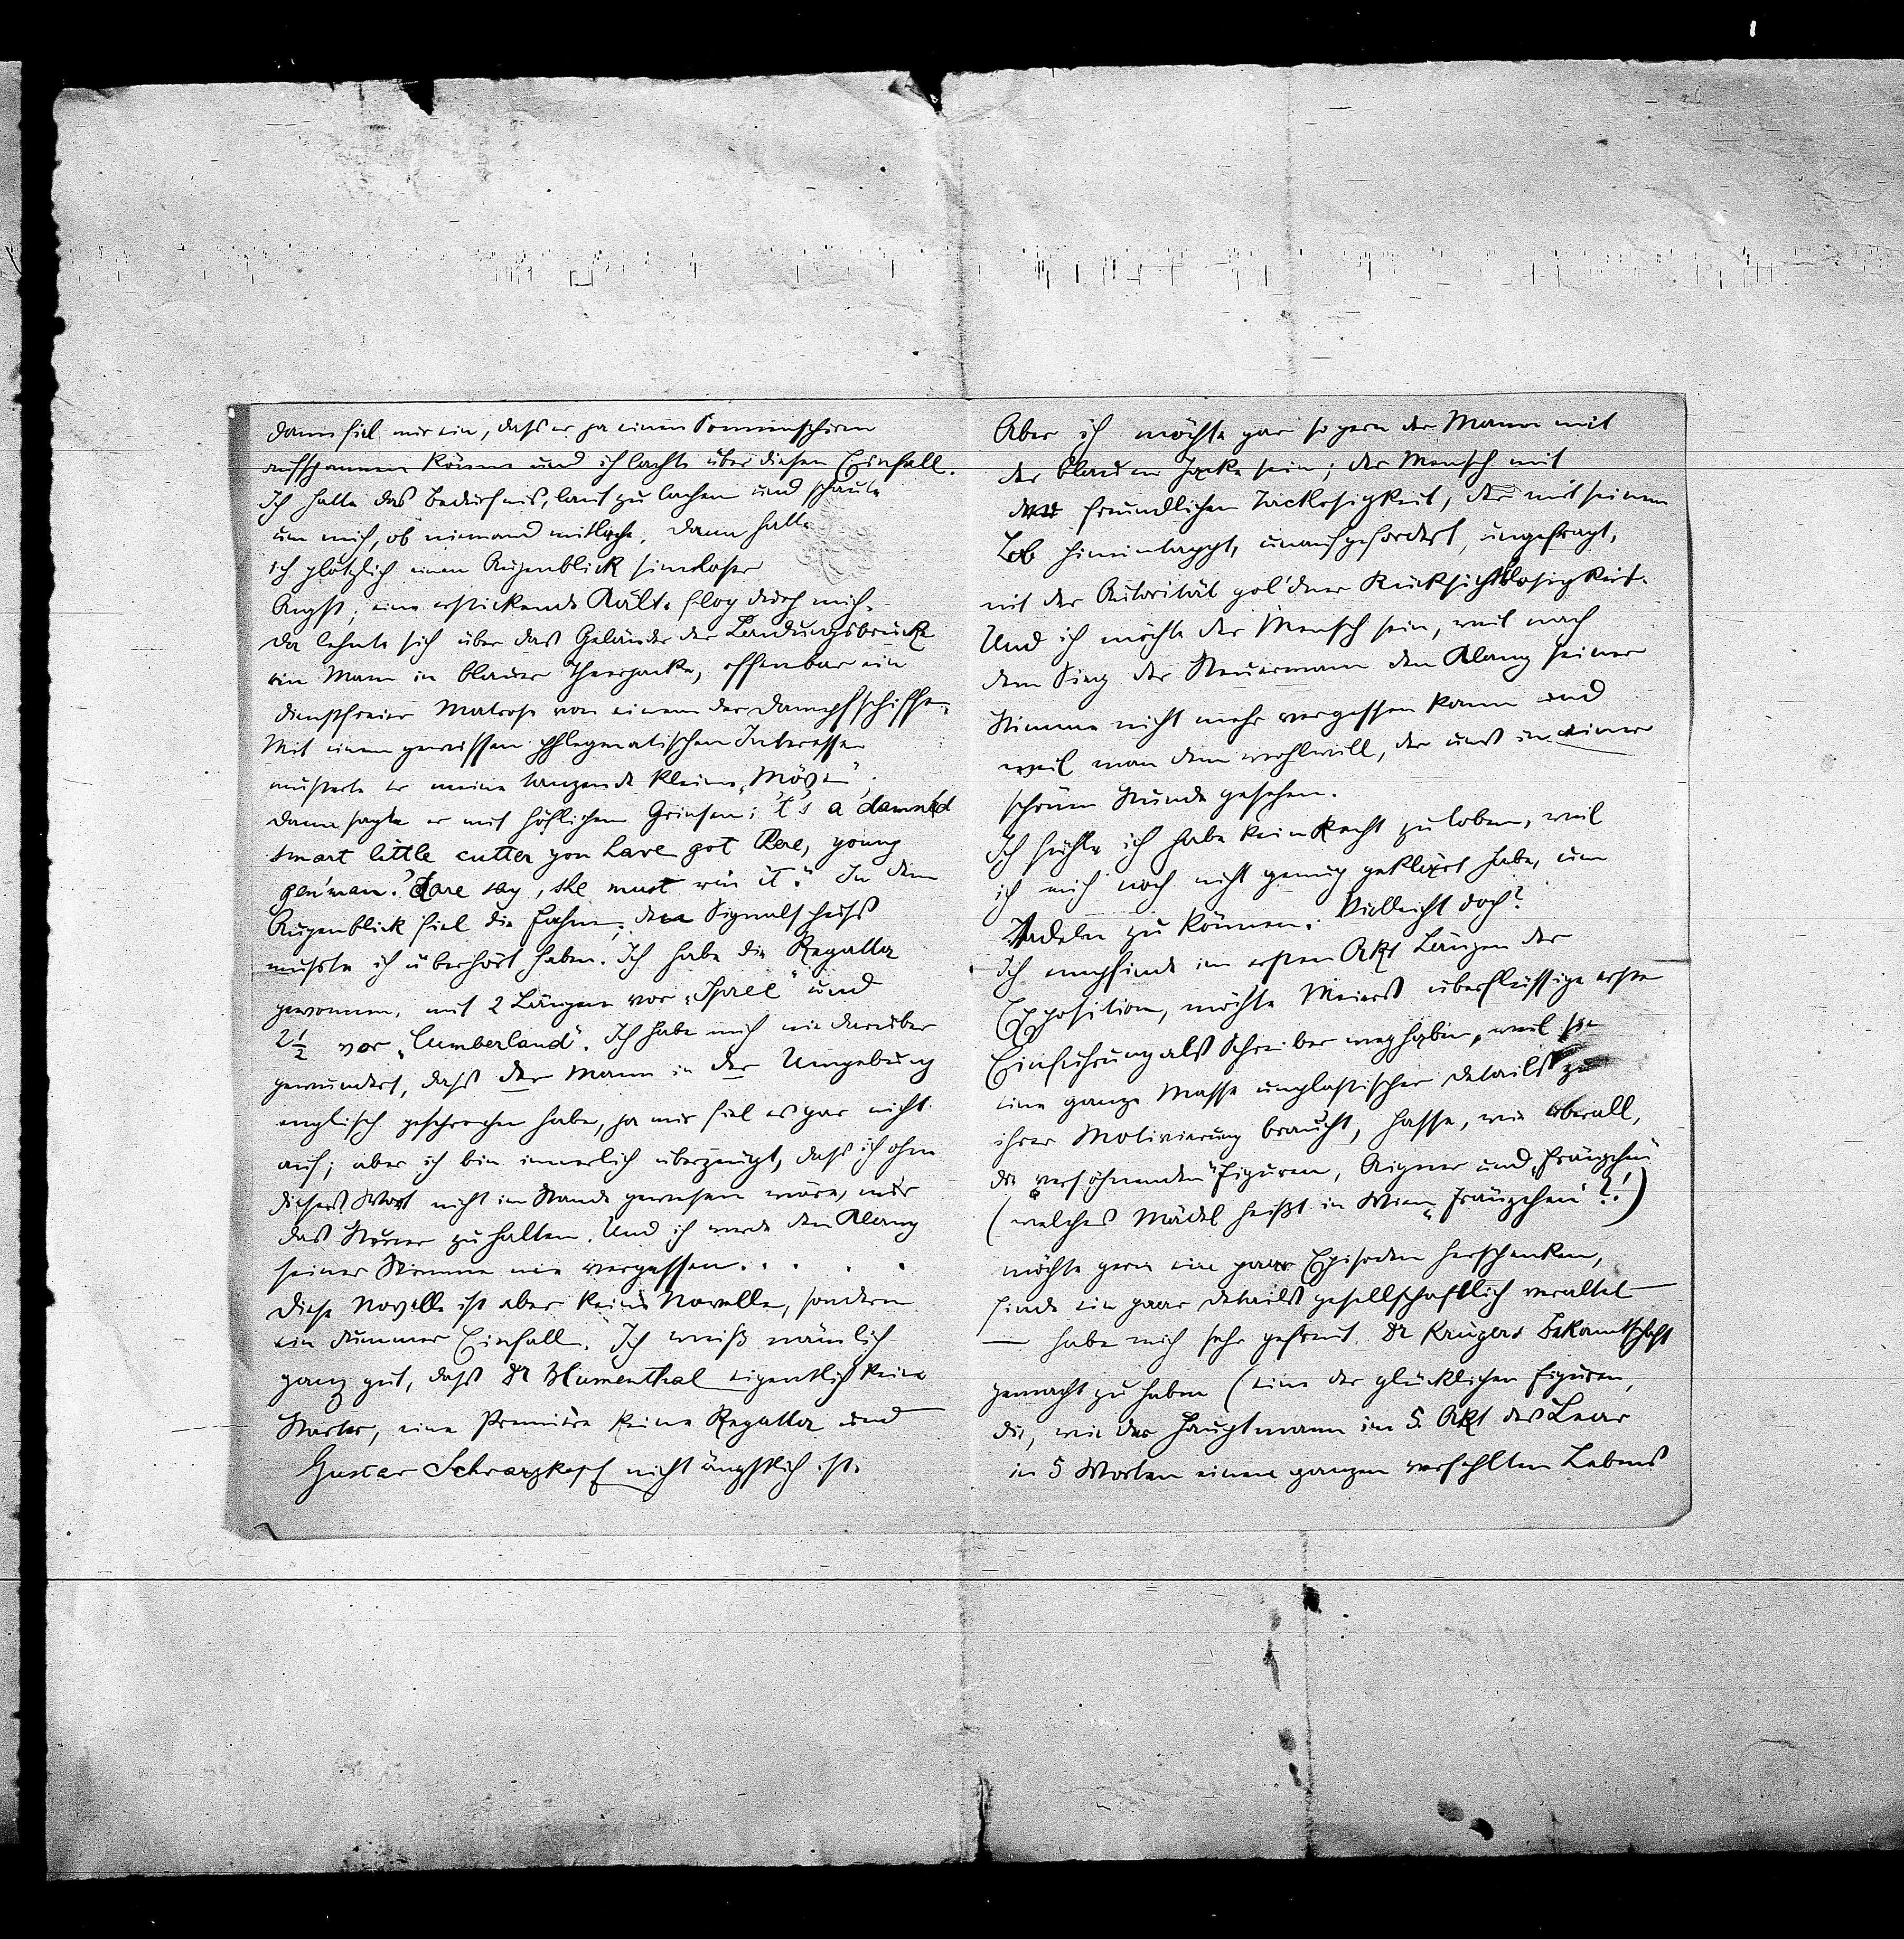 dann fiel mir ein, dass er ja einen Sonnenschirm
aufspannen könne und ich lachte über diesen Einfall.
Ich hatte das Bedürfnis, laut zu lachen und schaute
um mich, ob niemand mitlache. Dann hatte
ich plötzlich einen Augenblick sinnloser
Angst; eine erstickende Kälte flog durch mich.
Da lehnte sich über das Geländer der Landungsbrücke
ein Mann in blauer Theerjacke, offenbar ein
dienstfreier Matrose von einem der Dampfschiffe.
Mit einem gewissen phlegmatischen Interesse
musterte er meine tanzende kleine „Möve“.
Dann sagte er mit höflichem Grinsen: 't's a damned
smart little cutter you have got there, young
gen'man. Dare say, she must win it.“ In dem
Augenblick fiel die Fahne; den Signalschuss
musste ich überhört haben. Ich habe die Regatta
gewonnen, mit 2 Längen vor „Spree“ und
2½ vor „Cumberland“. Ich habe mich nie darüber
gewundert, dass der Mann in der Umgebung
englisch gesprochen habe, ja mir fiel es gar nicht
auf; aber ich bin innerlich überzeugt, dass ich ohne
dieses Wort nicht im Stande gewesen wäre, mir
das Steuer zu halten. Und ich werde den Klang
seiner Stimme nie vergessen. . . . .
Diese Novelle ist aber keine Novelle, sondern
ein dummer Einfall. Ich weiß nämlich
ganz gut, dass Dr Blumenthal eigentlich kein
Starter, eine Première keine Regatta und
Gustav Schwarzkopf nicht ängstlich ist.
Aber ich möchte gar so gern der Mann mit
der blauen Jacke sein; der Mensch mit
der freundlichen Tactlosigkeit, der mit seinem
Lob hineintappt, unaufgefordert, ungefragt,
mit der Autorität gold'ner Rücksichtslosigkeit.
Und ich möchte der Mensch sein, weil nach
dem Sieg der Steuermann den Klang seiner
Stimme nicht mehr vergessen kann und
weil man dem wohlwill, der uns in einer
schönen Stunde gesehen.
Ich fühle ich habe kein Recht zu loben, weil
ich mich noch nicht genug geklärt habe, um
Tadeln zu können. Vielleicht doch?
Ich empfinde im ersten Akt Längen der
Exposition, möchte Meiers überflüssige erste
Einführung als Schreiber weghaben, weil sie
eine ganze Masse unplastischer Details zu
ihrer Motivierung braucht, hasse, wie überall,
die „versöhnenden“ Figuren, Aigner und „Fränzchen“
(welches Mädel heißt in Wien „Fränzchen“?!)
möchte gern ein paar Episoden herschenken,
finde ein paar Details gesellschaftlich veraltet
— habe mich sehr gefreut Dr Krügers Bekanntschaft
gemacht zu haben (eine der glücklichen Figuren,
die, wie der Hauptmann im 5. Akt des Lear
in 5 Worten einen ganzen verfehlten Lebens